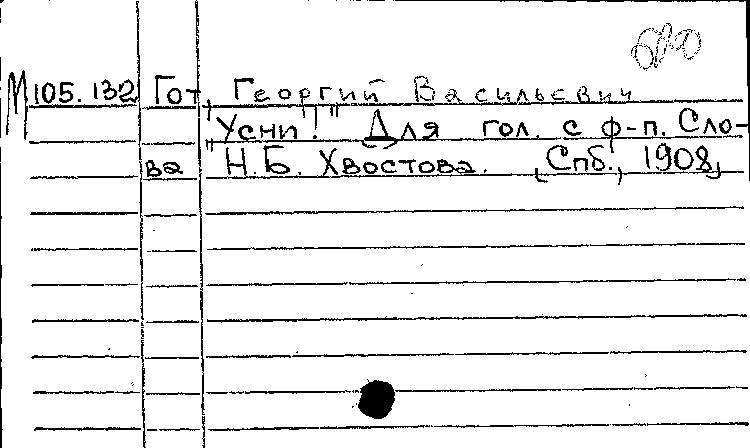 М 105.132 Гот, Георгий Васильевич
"Усни!" Для гол. с ф-п. Сло-
ва Н.Б. Хвостова. (Спб., 1908)